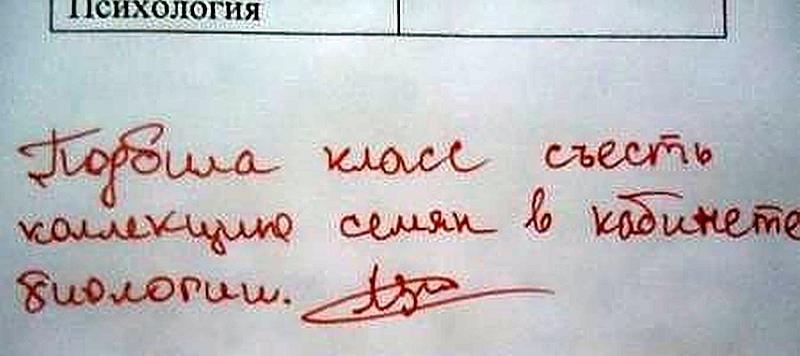 Психология
Подбила класс съесть
коллекцию семян в кабинете
биологии.